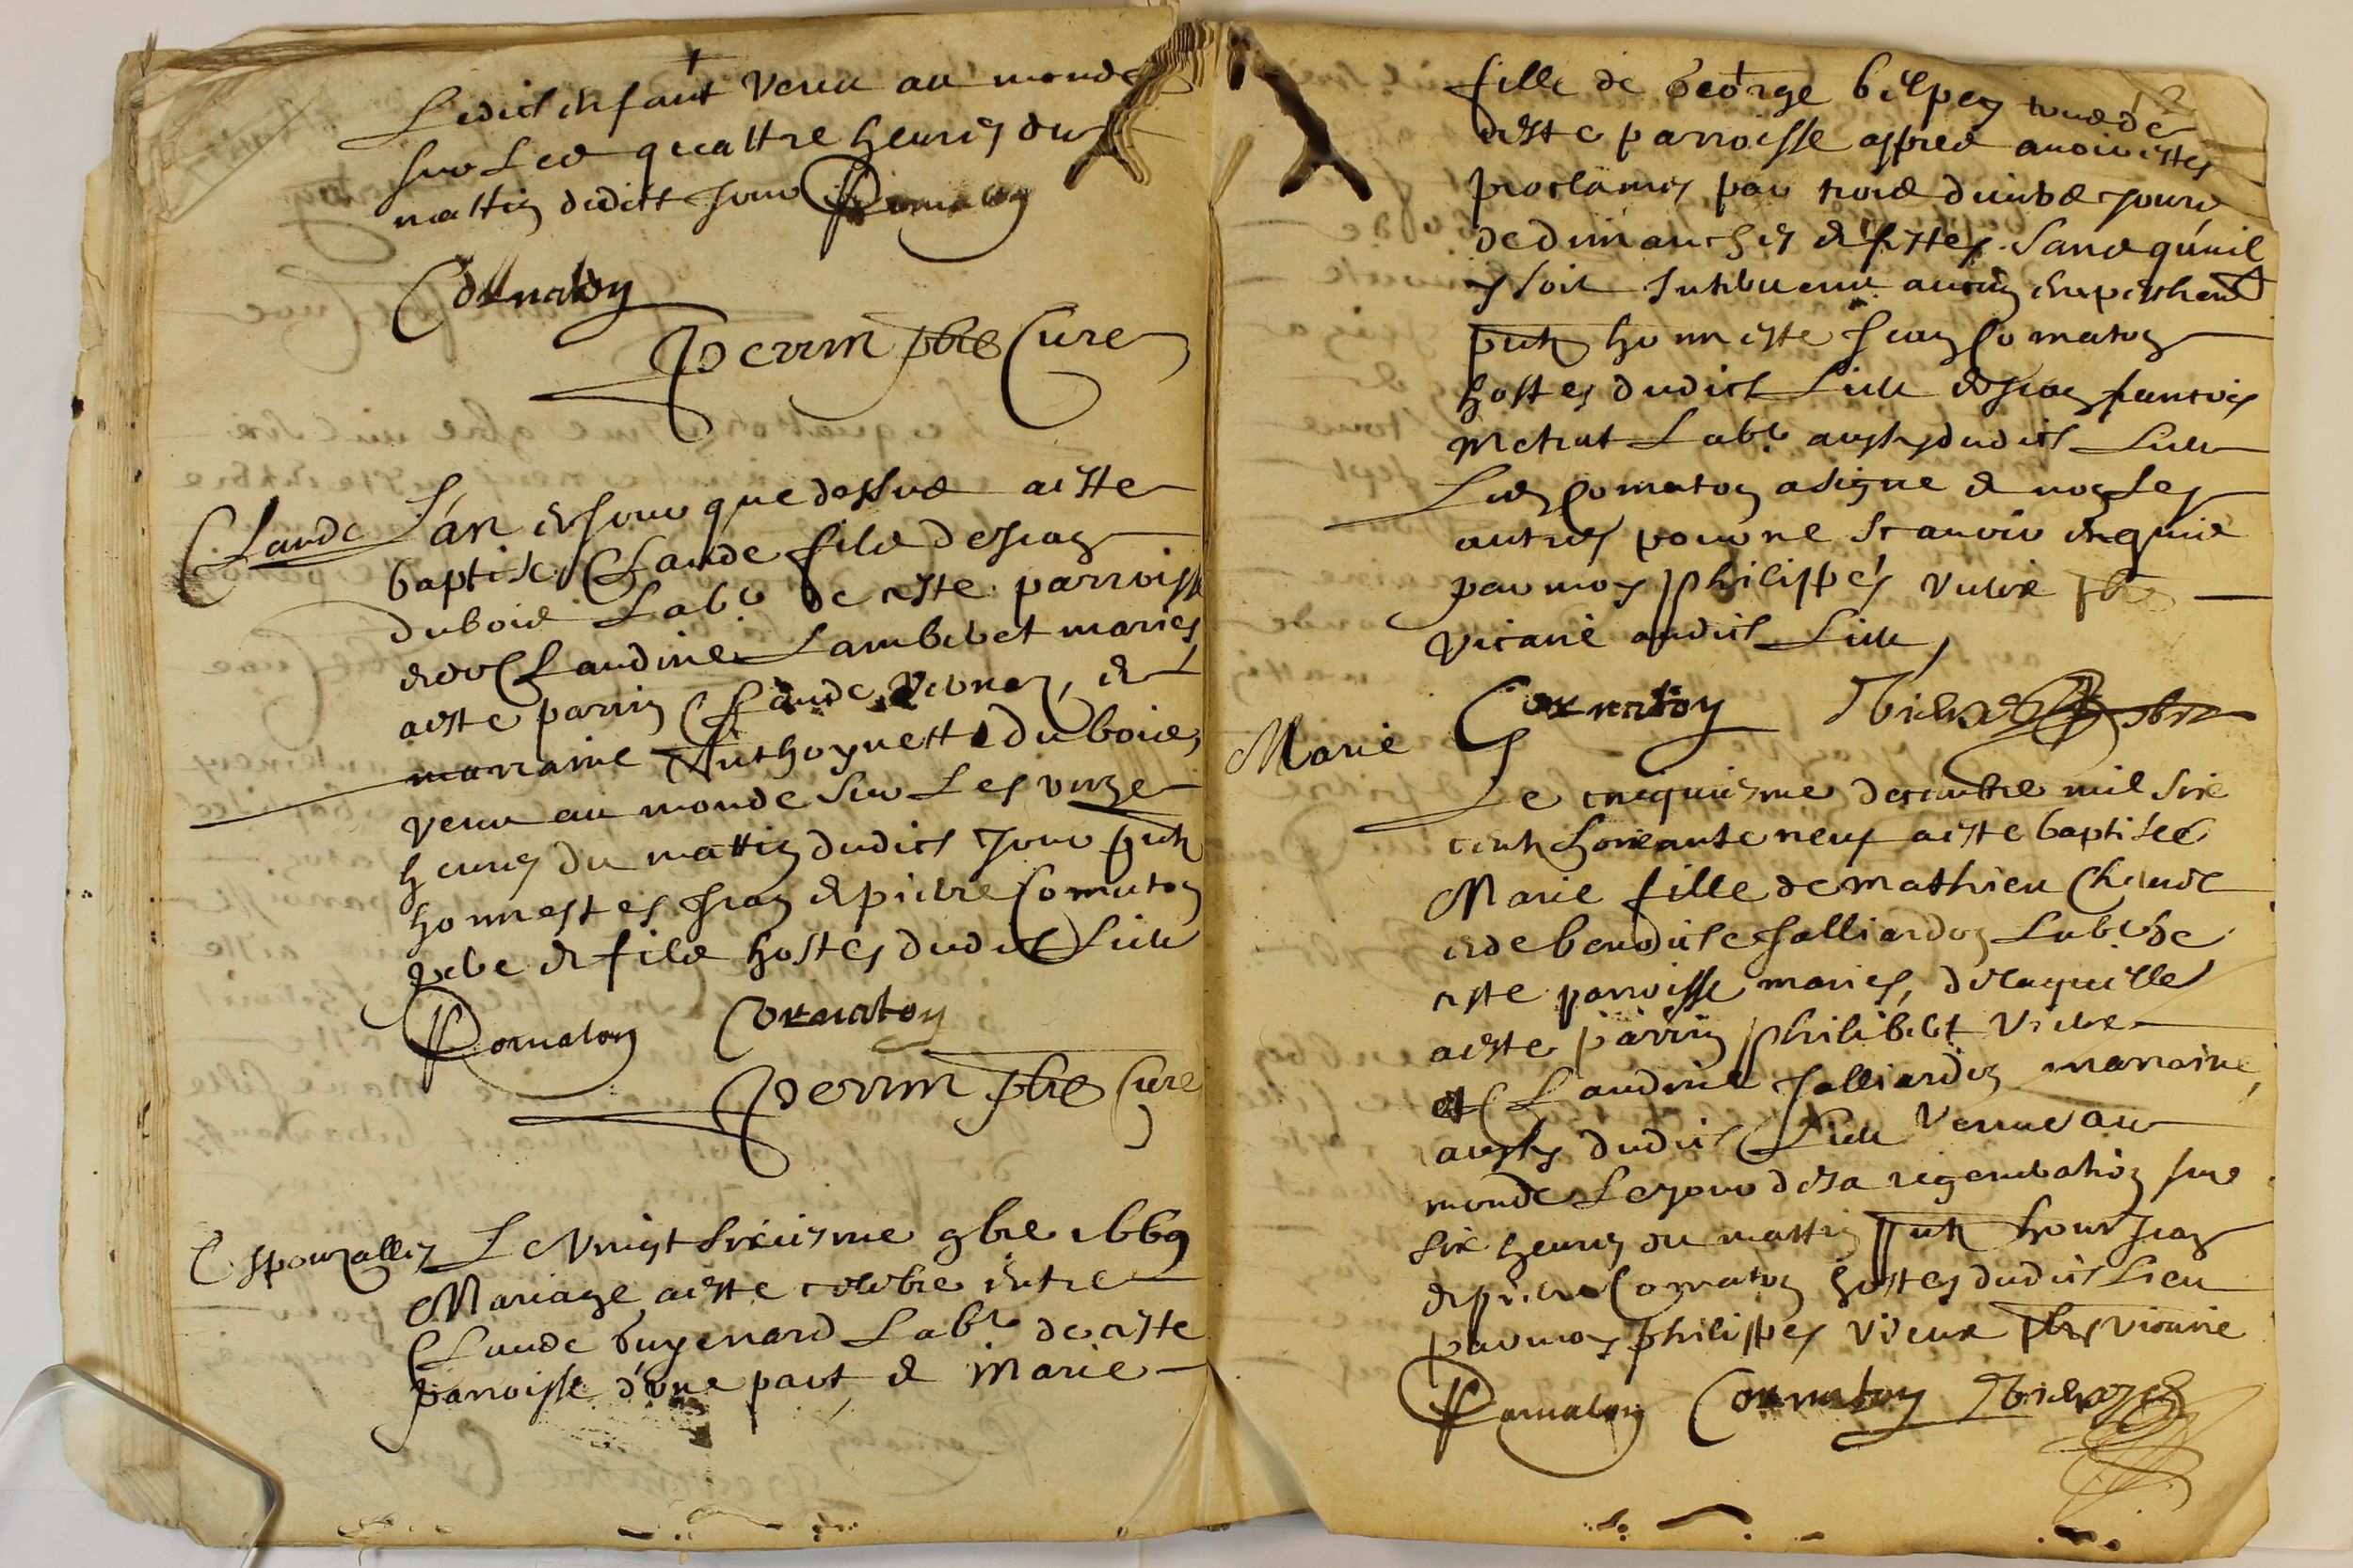 Ledict enfant venu au monde
sur Les quattre heures du
mattin dudict Jour Cornaton
Cornaton
Perrin pbre Cure
Claude L'an et Jour que dessus a este
baptise Claude fils de Jean
dubois Labr de ceste parroisse
et de Claudine Lambelet maries
a este parrin Claude et
marraine Anthoynette duboies,
venu au monde sur Les unze
heures du mattin dudict Jour pnts
honnestes Jean et pierre Cornaton
pere et fils hostes dudict Lieu
Cornaton Cornaton
Perrin pbre Cure
Espouzalles Le vingt sixiesme 9bre 1669
Mariage a este celebre entre
Claude buyenard Labr de ceste
parroisse d'une part, et Marie
fille de George tous de
ceste parroisse appres avoir estes
proclames par trois divers Jours
de dimanches et festes sans qu'il
y soit Intervenu aucun empeschent
pnts honneste Jean Cornaton
hostes dudict Lieu et Jean francois
Metrat Labr aussy dudict Lieu
Led Cornaton a signe et non Les
autres pour ne scavoir enquis
par moy philippes vieux pbre
vicaire audict Lieu,
Cornaton Vieux pbre
Marie
Le cinquiesme decembre mil six
cents soixante neuf a este baptisee
Marie fille de Mathieu Claude
et de benoiste Jalliardon Labr de
ceste parroisse maries, de laquelle
a este parrin philibert vieux
et Claudine Jalliardon marraine,
aussy dudict Lieu venue au
monde Le jour de sa regeneration sur
six heures du mattin pnts honn Jean
et pierre Cornaton hostes dudict Lieu
par moy philippes vieux pbre vicaire
Cornaton Cornaton Vieux